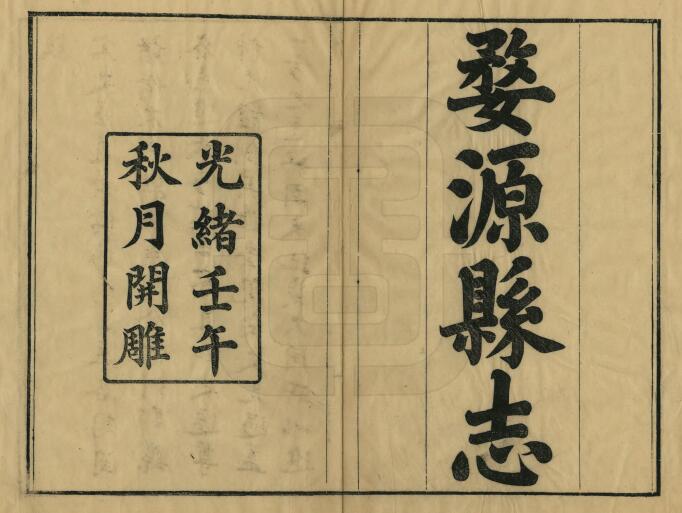 婺源縣志
光緒壬午
秋月開雕